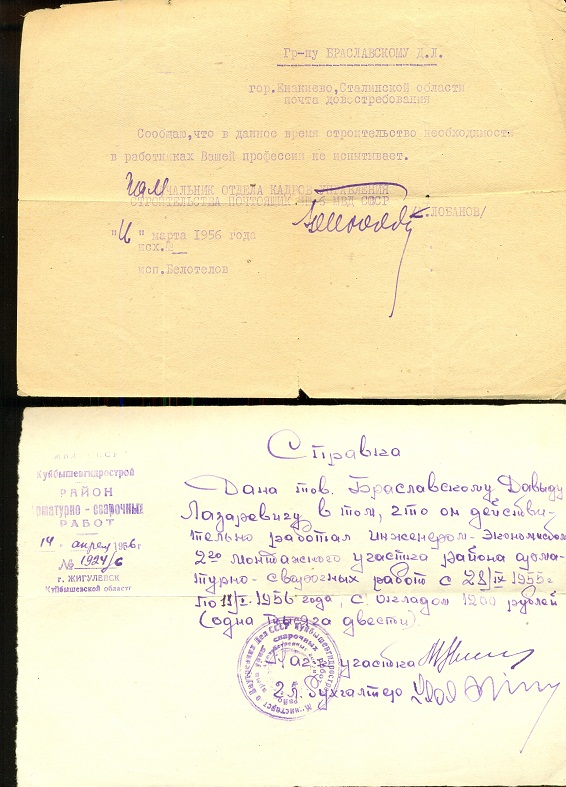 Гр-ну БРАСЛАВСКОМУ Д.Л.
гор.Енакиево,Сталинской области
почта довостребования
Сообщаю,что в данное время строительство необходимости
в работниках Вашей профессии не испытывает.
НАЧАЛЬНИК ОТДЕЛА КАДРОВ УПРАВЛЕНИЯ
СТРОИТЕЛЬСТВА ПОЧТОЯЩИК МВД СССР
/ЛОБАНОВ/
марта 1956 года
исх.
исп.Белотелов
Куйбышевгидрострой
РАЙОН
арматурно-сварочные
РАБОТ
14 апрель 1956 г
№ 1924/6
г. ЖИГУЛЕВСК
Куйбышевской области
Справка
Дана тов. Браславскому Давыду
Лазаревичу в том, что он действи-
тельно работал инженером-экономистом
2го монтажного участка района арма-
турно-сварочных работ с 28/IX 1955г
по 1956 года, с окладом 1200 рублей
(одна тысяча двести).
Нач. участка
Гл. бухгалтер